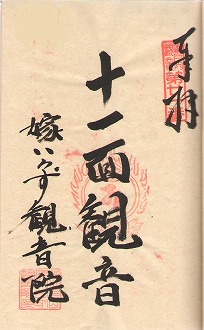 奉拝
十一面観音
嫁いらず観音院